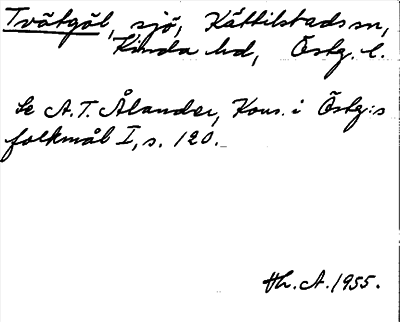 Tvätgöl, sjö, Kättilstads sn,
Kinda hd, Östg. l.
Se A.T. Ålander, Kons. i Östg:s
folkmål I, s. 120.
Hh. A. 1955.